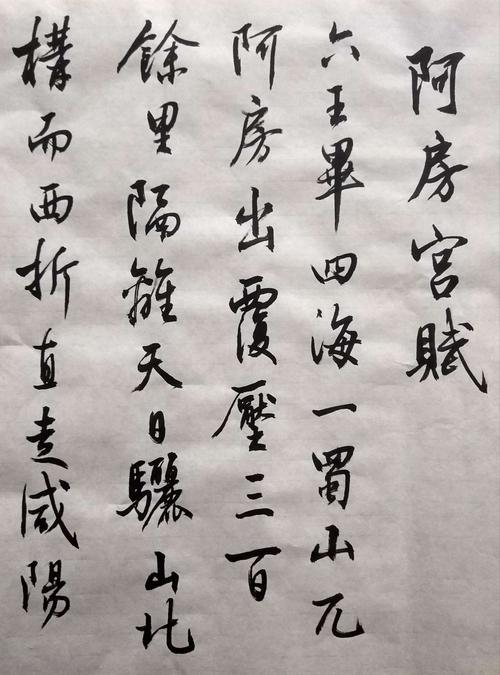 阿房宮賦
六王畢四海一蜀山兀
阿房出覆壓三百
餘里隔離天日驪山北
構而西折直走咸陽